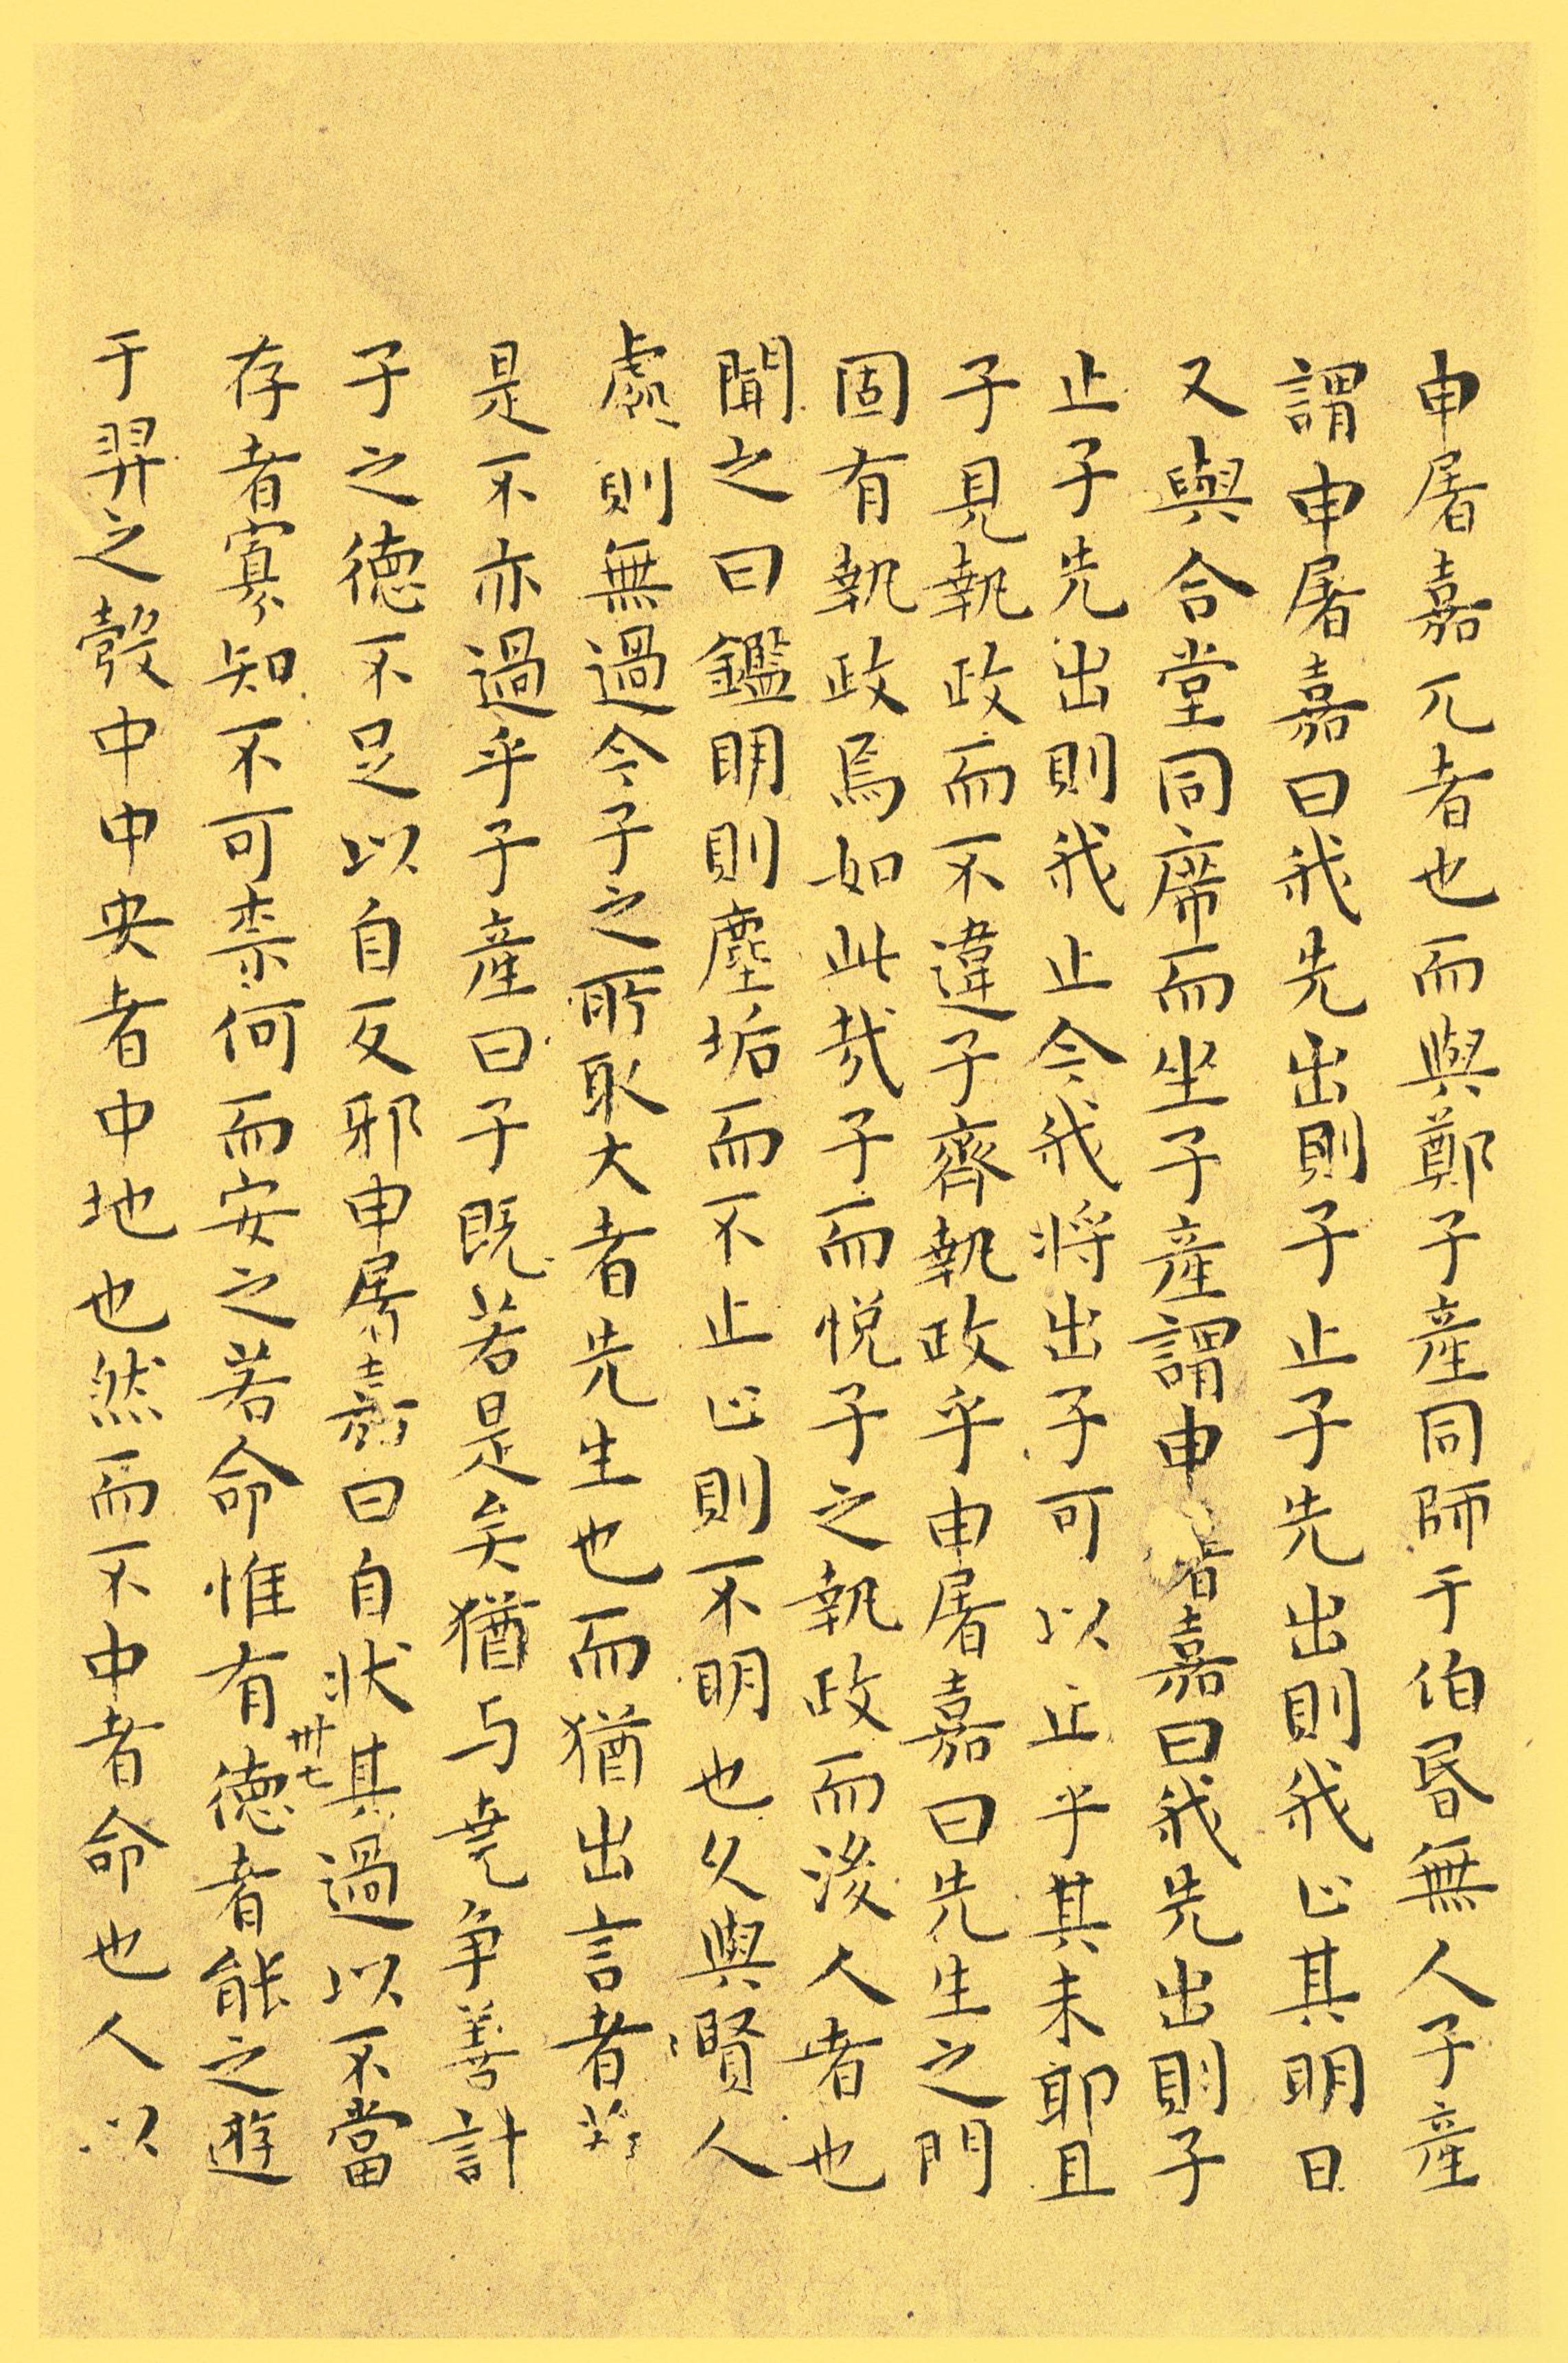 申屠嘉兀者也而與鄭子產同師于伯昏無人子產
謂申屠嘉曰我先出則子止子先出則我止其明日
又與合堂同席而坐子產謂申屠嘉曰我先出則子
止子先出則我止今我將出子可以止乎其未耶且
子見執政而不違子齊執政乎申屠嘉曰先生之門
固有執政焉如此哉子而悅子之執政而後人者也
聞之曰鑑明則塵垢而不止止則不明也久與賢人
處則無過今子之所取大者先生也而猶出言者若
是不亦過乎子產曰子既若是矣猶与堯争善計
子之德不足以自反邪申屠嘉曰自狀其過以不當
卅七
存者寡知不可柰何而安之若命惟有德者能之遊
于羿之彀中中央者中地也然而不中者命也人以